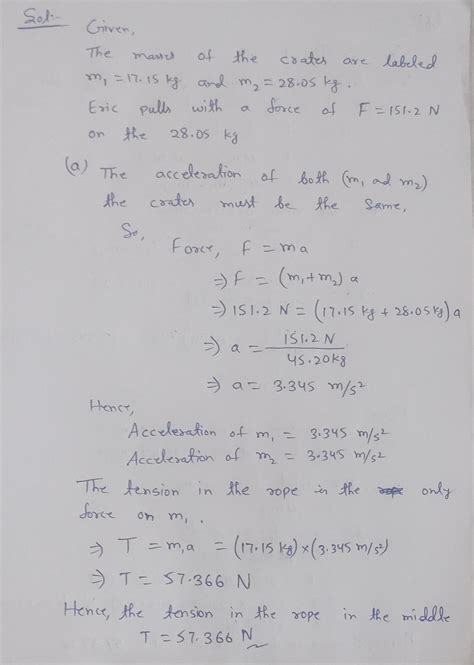 Sol:-
Given,
The masses of the crates are labeled
m₁ = 17.15 kg and m₂ = 28.05 kg.
Eric pulls with a force of F = 151.2 N
on the 28.05 kg
(a) The acceleration of both (m₁ ad m₂)
the crates must be the same,
So,
Force, F = ma
⇒ F = (m₁+m₂) a
⇒ 151.2 N = (17.15 kg + 28.05 kg) a
⇒ a = 151.2 N / 45.20 kg
⇒ a = 3.345 m/s²
Hence,
Acceleration of m₁ = 3.345 m/s²
Acceleration of m₂ = 3.345 m/s²
The tension in the rope is the only
force on m₁.
⇒ T = m₁a = (17.15 kg) × (3.345 m/s²)
⇒ T = 57.366 N
Hence, the tension in the rope in the middle
T = 57.366 N